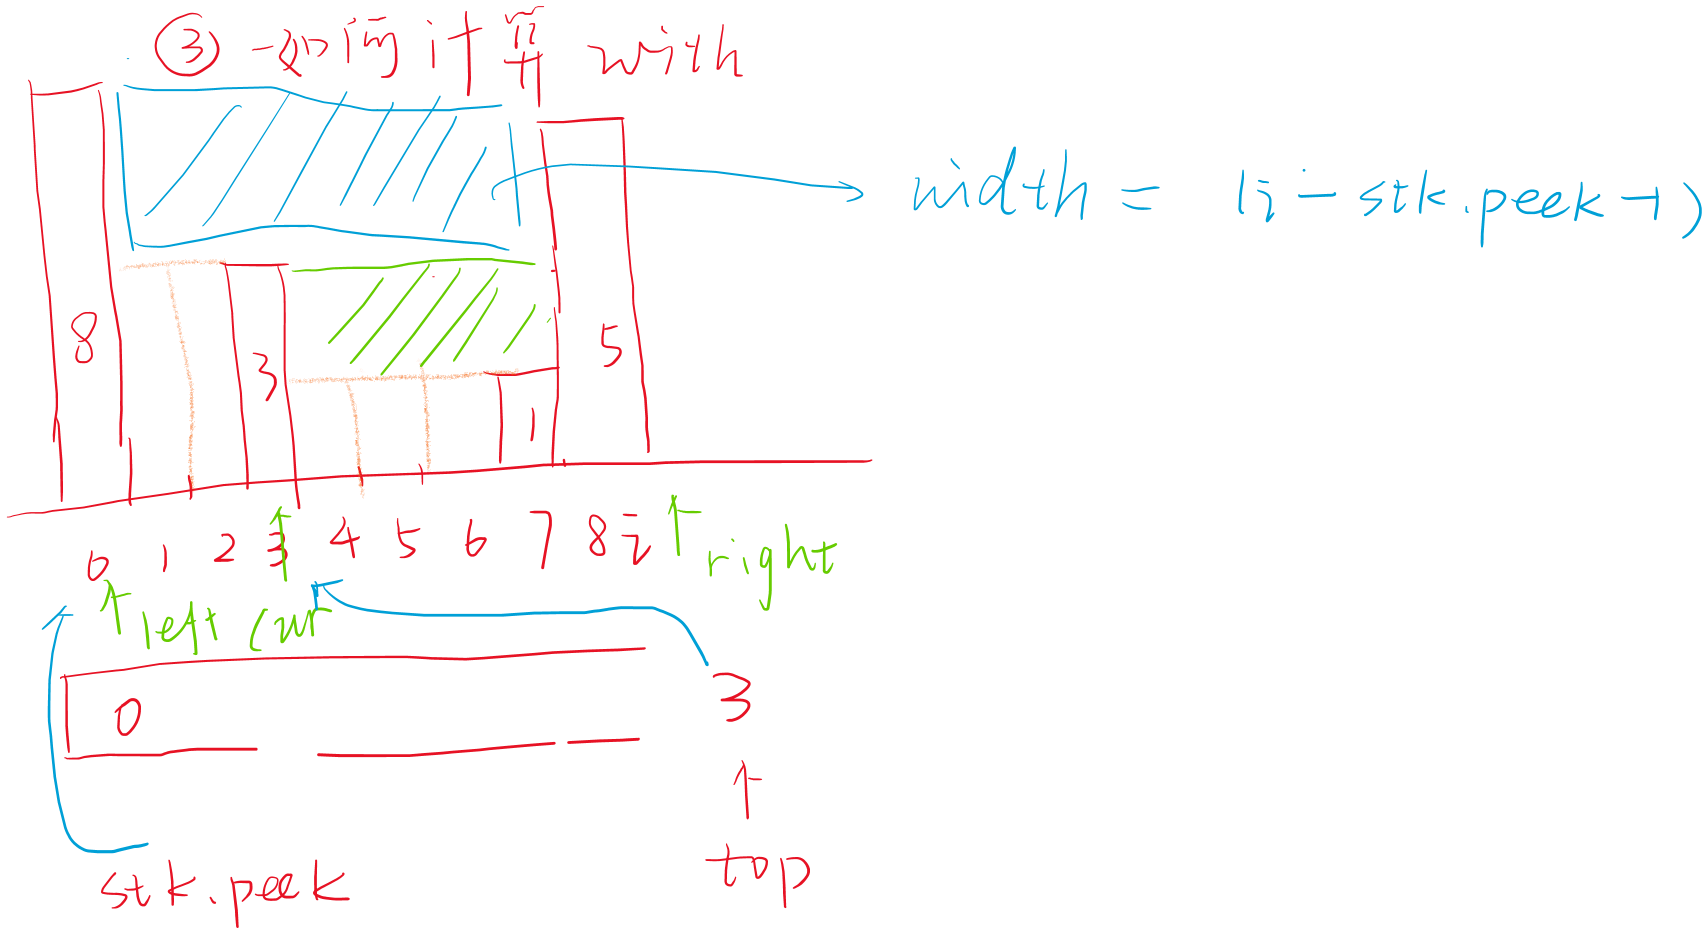 ③ 如何计算 with
width = (i - stk.peek - 1)
8 3 1 5
0 1 2 3 4 5 6 7 8 i right
left cur
0 3
top
stk.peek